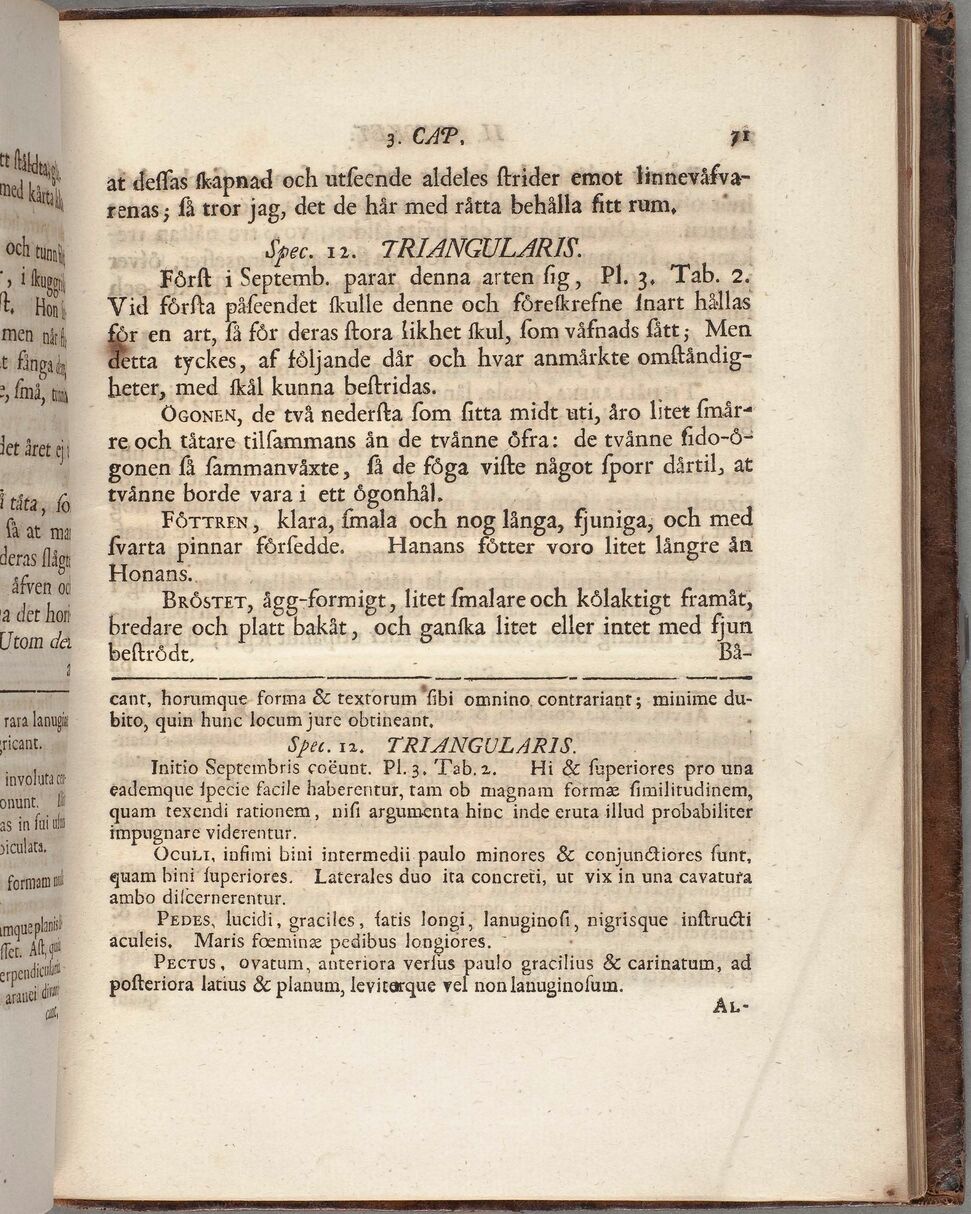 3. CAP. 71
at deſſas ſkapnad och utſeende aldeles ſtrider emot linnevåfva-
renas; ſå tror jag, det de hår med råtta behålla ſitt rum.
Spec. 12. TRIANGULARIS.
Fôrſt i Septemb. parar denna arten ſig, Pl. 3. Tab. 2.
Vid fôrſta påſeendet ſkulle denne och fôreſkrefne ſnart hållas
fôr en art, ſå fôr deras ſtora likhet ſkul, ſom våfnads ſått; Men
detta tyckes, af fôljande dår och hvar anmårkte omſtåndig-
heter, med ſkål kunna beſtridas.
ÔGONEN, de två nederſta ſom ſitta midt uti, åro litet ſmår-
re och tåtare tilſammans ån de tvånne ôfra: de tvånne ſido-ô-
gonen ſå ſammanvåxte, ſå de fôga viſte något ſporr dårtil, at
tvånne borde vara i ett ôgonhål.
FÔTTREN, klara, ſmala och nog långa, fjuniga, och med
ſvarta pinnar fôrſedde. Hanans fôtter voro litet långre ån
Honans.
BRÔSTET, ågg-formigt, litet ſmalare och kôlaktigt framåt,
bredare och platt bakåt, och ganſka litet eller intet med fjun
beſtrôdt. Bå-
cant, horumque forma & textorum ſibi omnino contrariant; minime du-
bito, quin hunc locum jure obtineant.
Spec. 12. TRIANGULARIS.
Initio Septembris coëunt. Pl. 3. Tab. 2. Hi & ſuperiores pro una
eademque ſpecie facile haberentur, tam ob magnam formæ ſimilitudinem,
quam texendi rationem, niſi argumenta hinc inde eruta illud probabiliter
impugnare viderentur.
OCULI, infimi bini intermedii paulo minores & conjunctiores ſunt,
quam bini ſuperiores. Laterales duo ita concreti, ut vix in una cavatura
ambo diſcernerentur.
PEDES, lucidi, graciles, ſatis longi, lanuginoſi, nigrisque inſtructi
aculeis. Maris fœminæ pedibus longiores.
PECTUS, ovatum, anteriora verſus paulo gracilius & carinatum, ad
poſteriora latius & planum, leviterque vel non lanuginoſum.
AL-